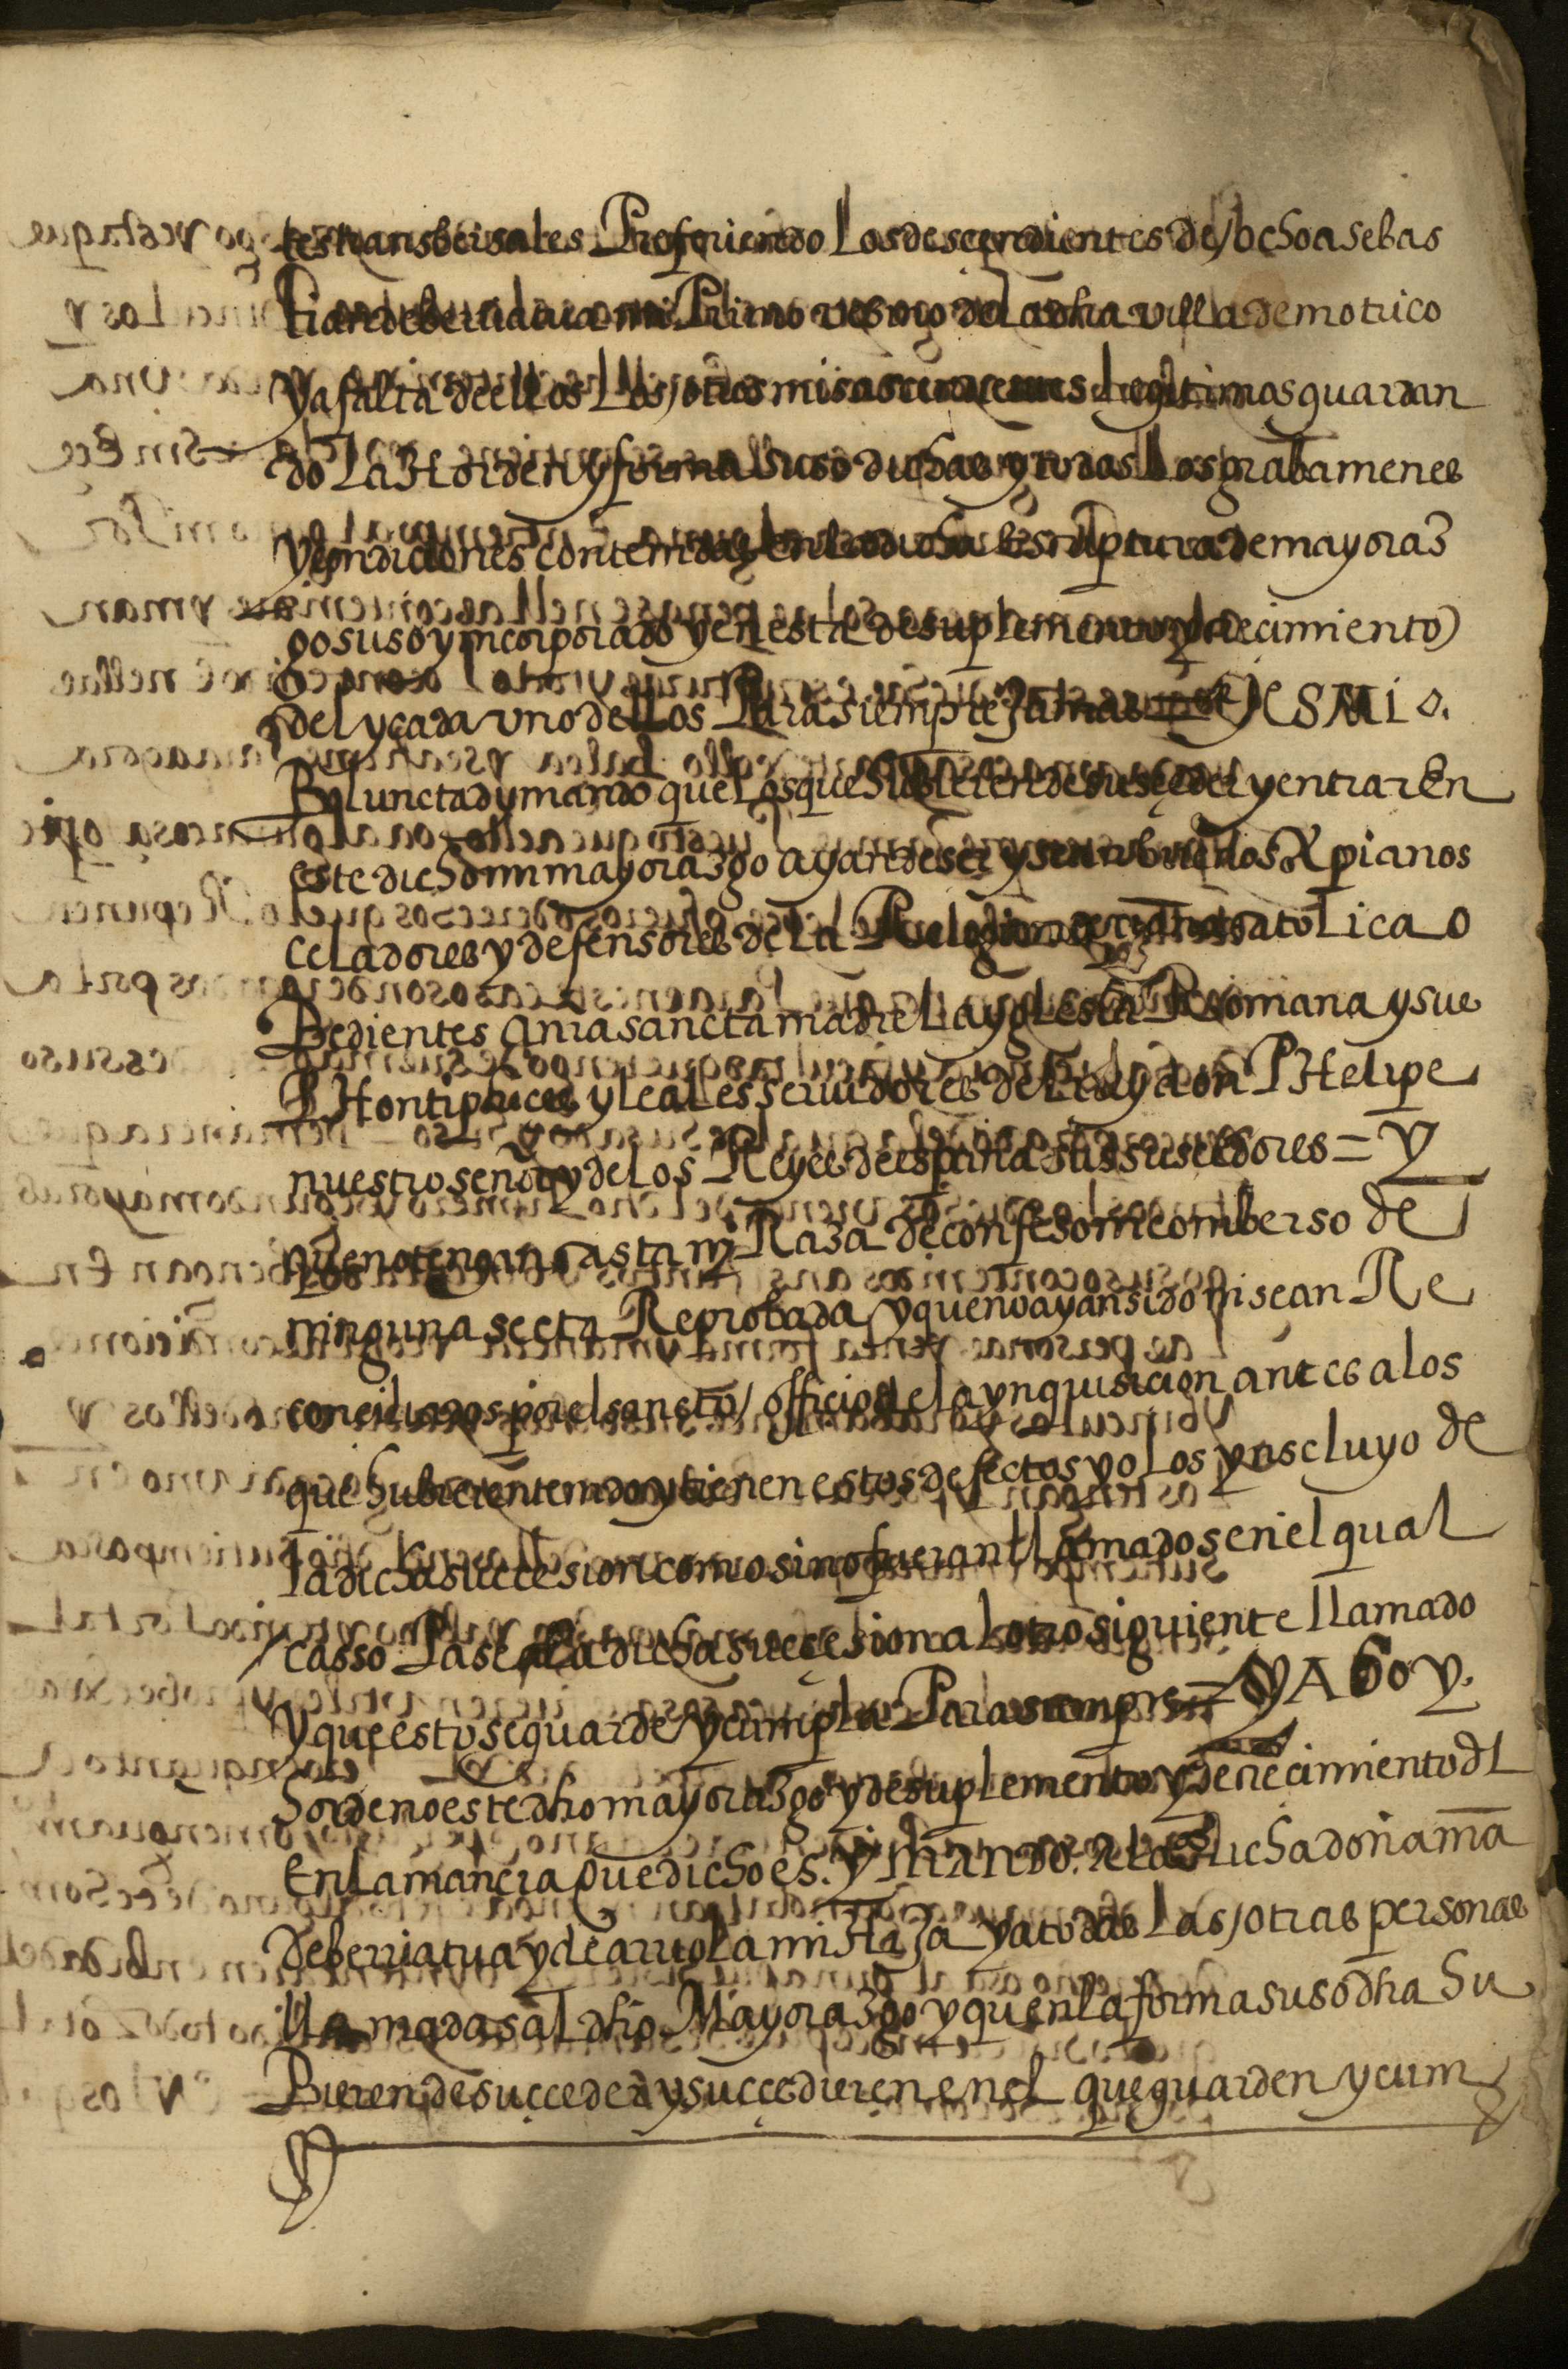 tes transbersales Prefiriendo Los descendientes de / ochoa sebas
tian de berriatua mi Primo vesino de La dha villa de motrico
y a falta de ellos Los / otros mis legitimos guardan
do La Horden y forma suso dicha y todos Los grabamenes
y condiciones contenidas en La dicha escriptura de mayoraz
go suso yncorporado y en esta de suplemento y crecimiento
del y cada vno dellos Para siempre Jamas = ES MI
Boluntad y mando que Los que Hubieren de suseder y entrar En
este dicho mi mayorazgo ayan de ser y sean buenos Xpianos
celadores y defensores de La Relegion catolica o
Bedientes a nra sancta madre La yglesia Romana y sus
PHontifices y leales servidores del Rey don PHelipe
nuestro señor y de Los Reyes de españa sus susesores = y
que no tengan casta ni Raza de confeso ni comberso de
ninguna secta Reprobada y que no ayan sido ni sean Re
conciliados por el sancto / officio de la ynquisicion antes a los
que hubieren tenido y tienen estos defectos yo Los ynscluyo de
la dicha succesion como si no fueran llamados en el qual
/ casso Pase La dicha succesion al otro siguiente llamado
y que esto se guarde y cumpla Para siempre = y A Go y.
hordeno este dho mayorazgo y de suplemento y de crecimiento dl
En la manera que dicho es. y mando. a la dicha doña ma
de berriatua y de arriola mi Hija y a todas Las / otras personas
llamadas al dho Mayorazgo y que en la forma susodha hu
Bieren de succeder y succedieren en el que guarden y cum